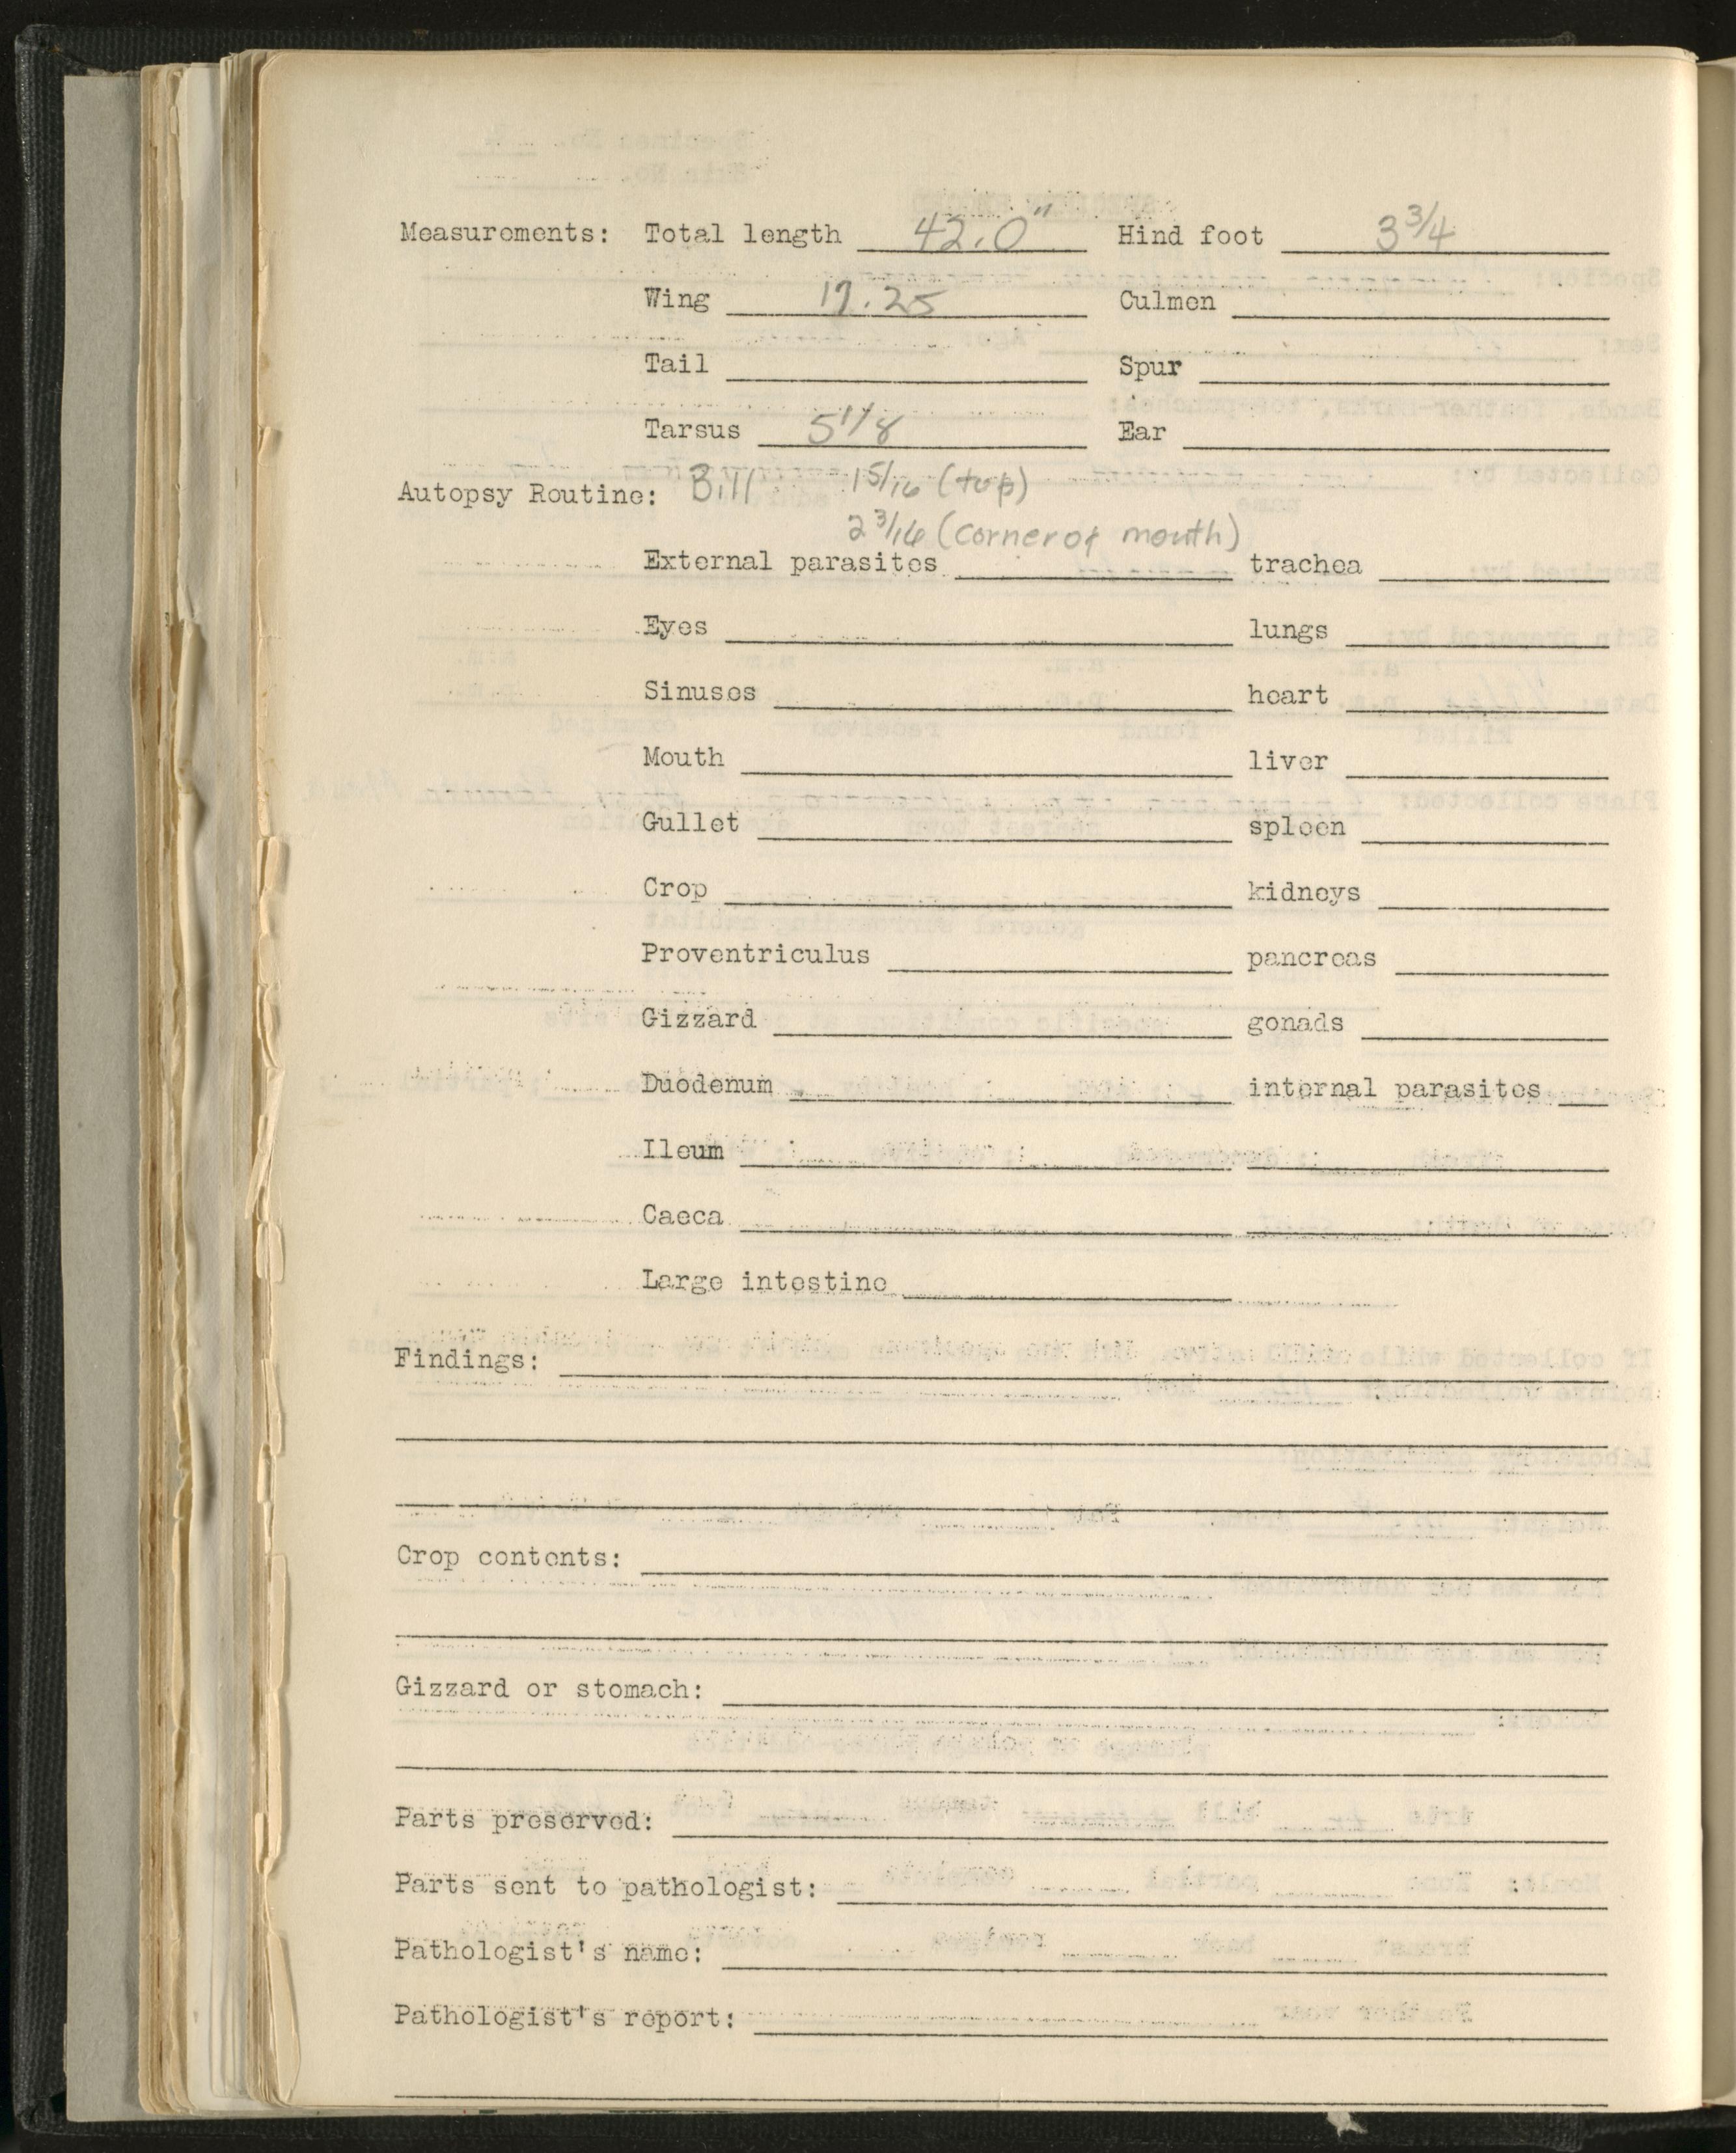 Measurements: Total length 42.0" Hind foot 3 3/4
Wing 17.25 Culmen
Tail Spur
Tarsus 5 1/8 Ear
Autopsy Routine: Bill 1 5/16 (top)
2 3/16 (corner of mouth)
External parasites trachea
Eyes lungs
Sinuses heart
Mouth liver
Gullet spleen
Crop kidneys
Proventriculus pancreas
Gizzard gonads
Duodenum internal parasites
Ileum
Caeca
Large intestine
Findings:
Crop contents:
Gizzard or stomach:
Parts preserved:
Parts sent to pathologist:
Pathologist's name:
Pathologist's report: